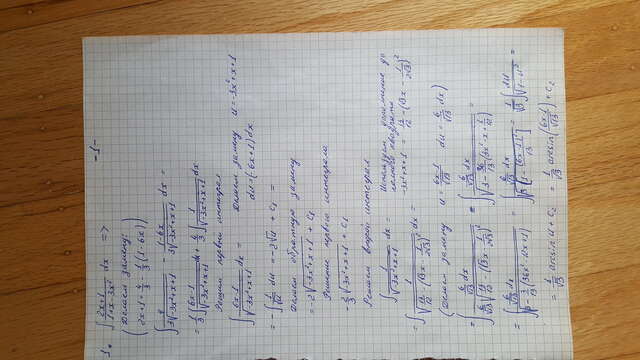 -1-
1. ∫ (2x+1)/(1+x-3x²) dx =>
(Делаем замену:
2x+1 = 4/3 - 1/3 (1-6x))
∫ 4/(3√(-3x²+x+1)) - (1-6x)/(3√(-3x²+x+1)) dx =
= 1/3 ∫ (6x-1)/√(-3x²+x+1) dx + 4/3 ∫ 1/√(-3x²+x+1) dx
Решим первый интеграл
∫ (6x-1)/√(-3x²+x+1) dx = Делаем замену u = -3x²+x+1
du = (-6x+1)dx
= -∫ 1/√u du = -2√u + C₁ =
Делаем обратную замену
= -2√(-3x²+x+1) + C₁
Решение первого интеграла
-2/3 √(-3x²+x+1) + C₁
Решаем второй интеграл
∫ 1/√(-3x²+x+1) dx = Используем дополнение до
полного квадрата
= ∫ 1/√(13/12 - (√3x - 1/(2√3))²) dx = -3x²+x+1 = 13/12 - (√3x - 1/(2√3))²
(Делаем замену u = (6x-1)/√13 du = 6/√13 dx)
= ∫ (6/√13 dx)/(6/√13 √(13/12 - (√3x - 1/(2√3))²)) = ∫ (6/√13 dx)/√(3 - 36/13 (3x² - x + 1/12)) =
= ∫ (6/√13 dx)/√(3 - 3/13 (36x² - 12x + 1)) = ∫ (6/√13 dx)/√(3[1 - (6x-1)²/13]) = 1/√3 ∫ du/√(1-u²) =
= 1/√3 arcsin u + C₂ = 1/√3 arcsin((6x-1)/√13) + C₂